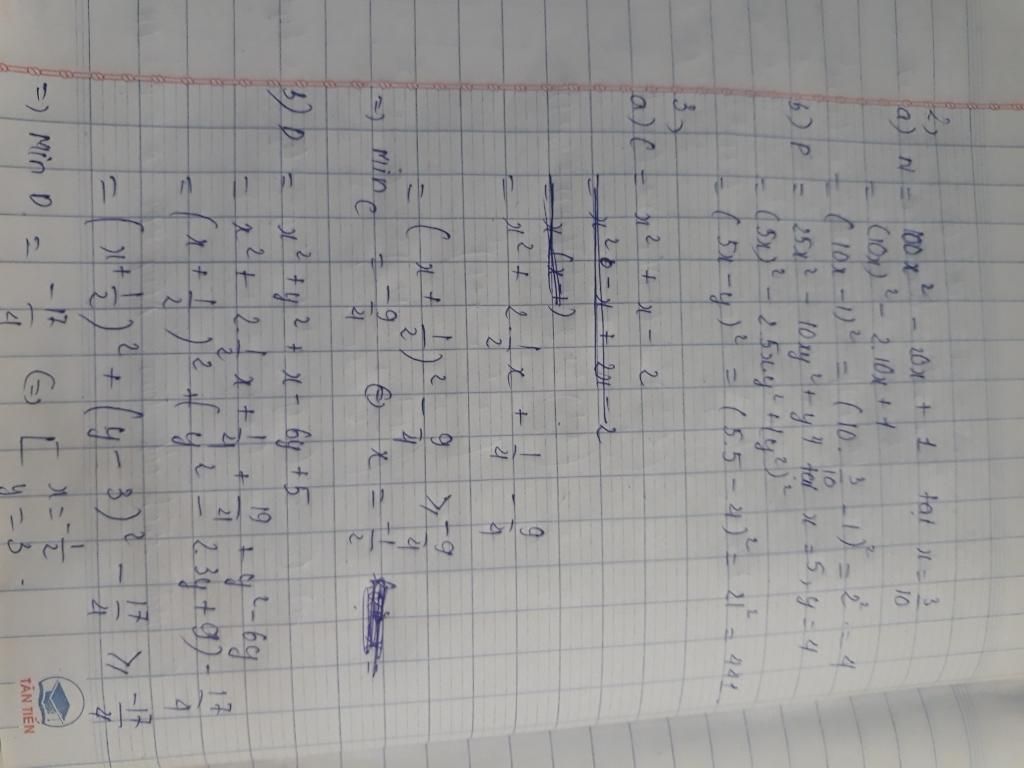 2)
a) N = 100x² - 20x + 1 tại x = 3/10
= (10x)² - 2.10x + 1
= (10x - 1)² = (10. 3/10 - 1)² = 2² = 4
b) P = 25x² - 10xy² + y⁴ tại x = 5, y = 4
= (5x)² - 2.5xy² + (y²)²
= (5x - y)² = (5.5 - 4)² = 21² = 441
3)
a) C = x² + x - 2
= x² - x + 2x - 2
= x² + 2. 1/2 x + 1/4 - 9/4
= (x + 1/2)² - 9/4 ⩾ -9/4
=) min C = -9/4 (=) x = -1/2
b) D = x² + y² + x - 6y + 5
= x² + 2. 1/2 x + 1/4 + 19/4 + y² - 6y
= (x + 1/2)² + (y² - 2.3y + 9) - 17/4
= (x + 1/2)² + (y - 3)² - 17/4 ⩾ -17/4
=) Min D = -17/4 (=) [ x = -1/2
y = 3
TÂN TIẾN